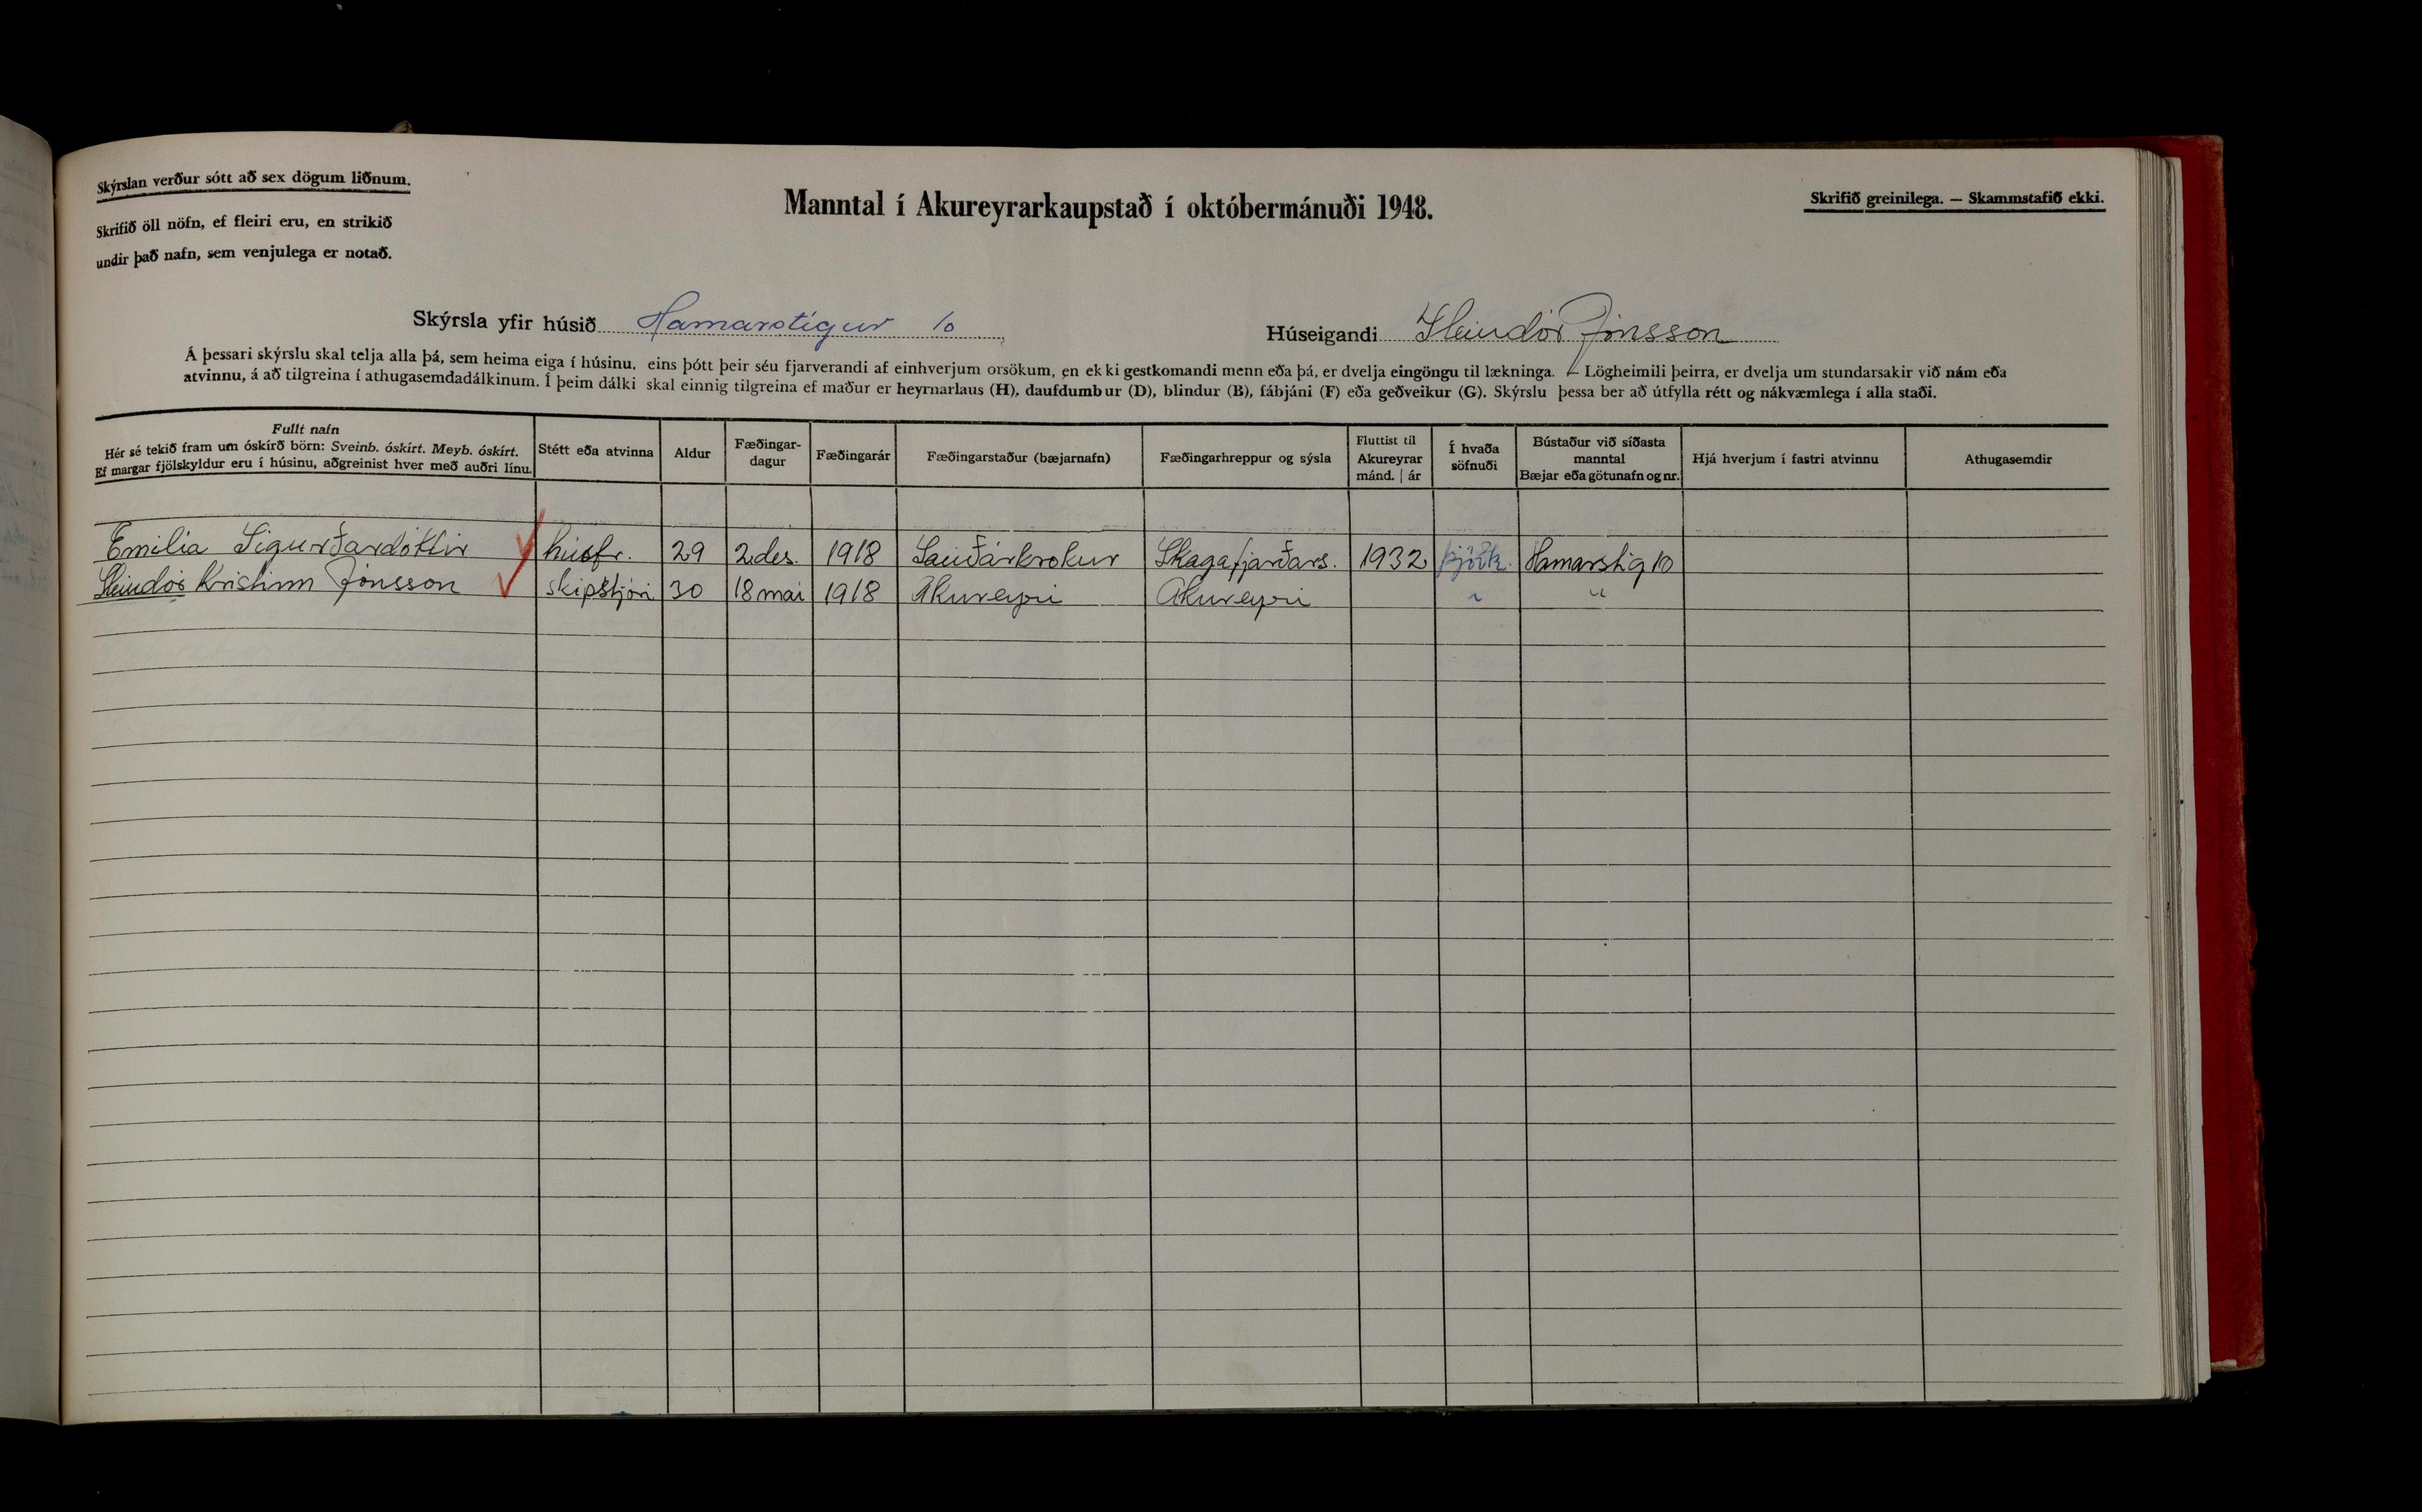 Skýrslan verður sótt að sex dögum liðnum.
Skrifið öll nöfn, ef fleiri eru, en strikið
undir það nafn, sem venjulega er notað.
Manntal í Akureyrarkaupstað í októbermánuði 1948.
Skrifið greinilega. — Skammstafið ekki.
Skýrsla yfir húsið Hamarstígur 10
Húseigandi Steindór Jónsson
Á þessari skýrslu skal telja alla þá, sem heima eiga í húsinu, eins þótt þeir séu fjarverandi af einhverjum orsökum, en ekki gestkomandi menn eða þá, er dvelja eingöngu til lækninga. — Lögheimili þeirra, er dvelja um stundarsakir við nám eða
atvinnu, á að tilgreina í athugasemdadálkinum. Í þeim dálki skal einnig tilgreina ef maður er heyrnarlaus (H), daufdumbur (D), blindur (B), fábjáni (F) eða geðveikur (G). Skýrslu þessa ber að útfylla rétt og nákvæmlega í alla staði.
Fullt nafn
Hér sé tekið fram um óskírð börn: Sveinb. óskírt. Meyb. óskírt.
Ef margar fjölskyldur eru í húsinu, aðgreinist hver með auðri línu.
Stétt eða atvinna
Aldur
Fæðingar-
dagur
Fæðingarár
Fæðingarstaður (bæjarnafn)
Fæðingarhreppur og sýsla
Fluttist til
Akureyrar
mánd. | ár
Í hvaða
söfnuði
Bústaður við síðasta
manntal
Bæjar eða götunafn og nr.
Hjá hverjum í fastri atvinnu
Athugasemdir
Emilía Sigurðardóttir húsfr. 29 2 des. 1918 Sauðárkrokur Skagafjarðars. 1932 þjóðk. Hamarstíg 10
Steindór Kristinn Jónsson skipstjóri 30 18 maí 1918 Akureyri Akureyri " "